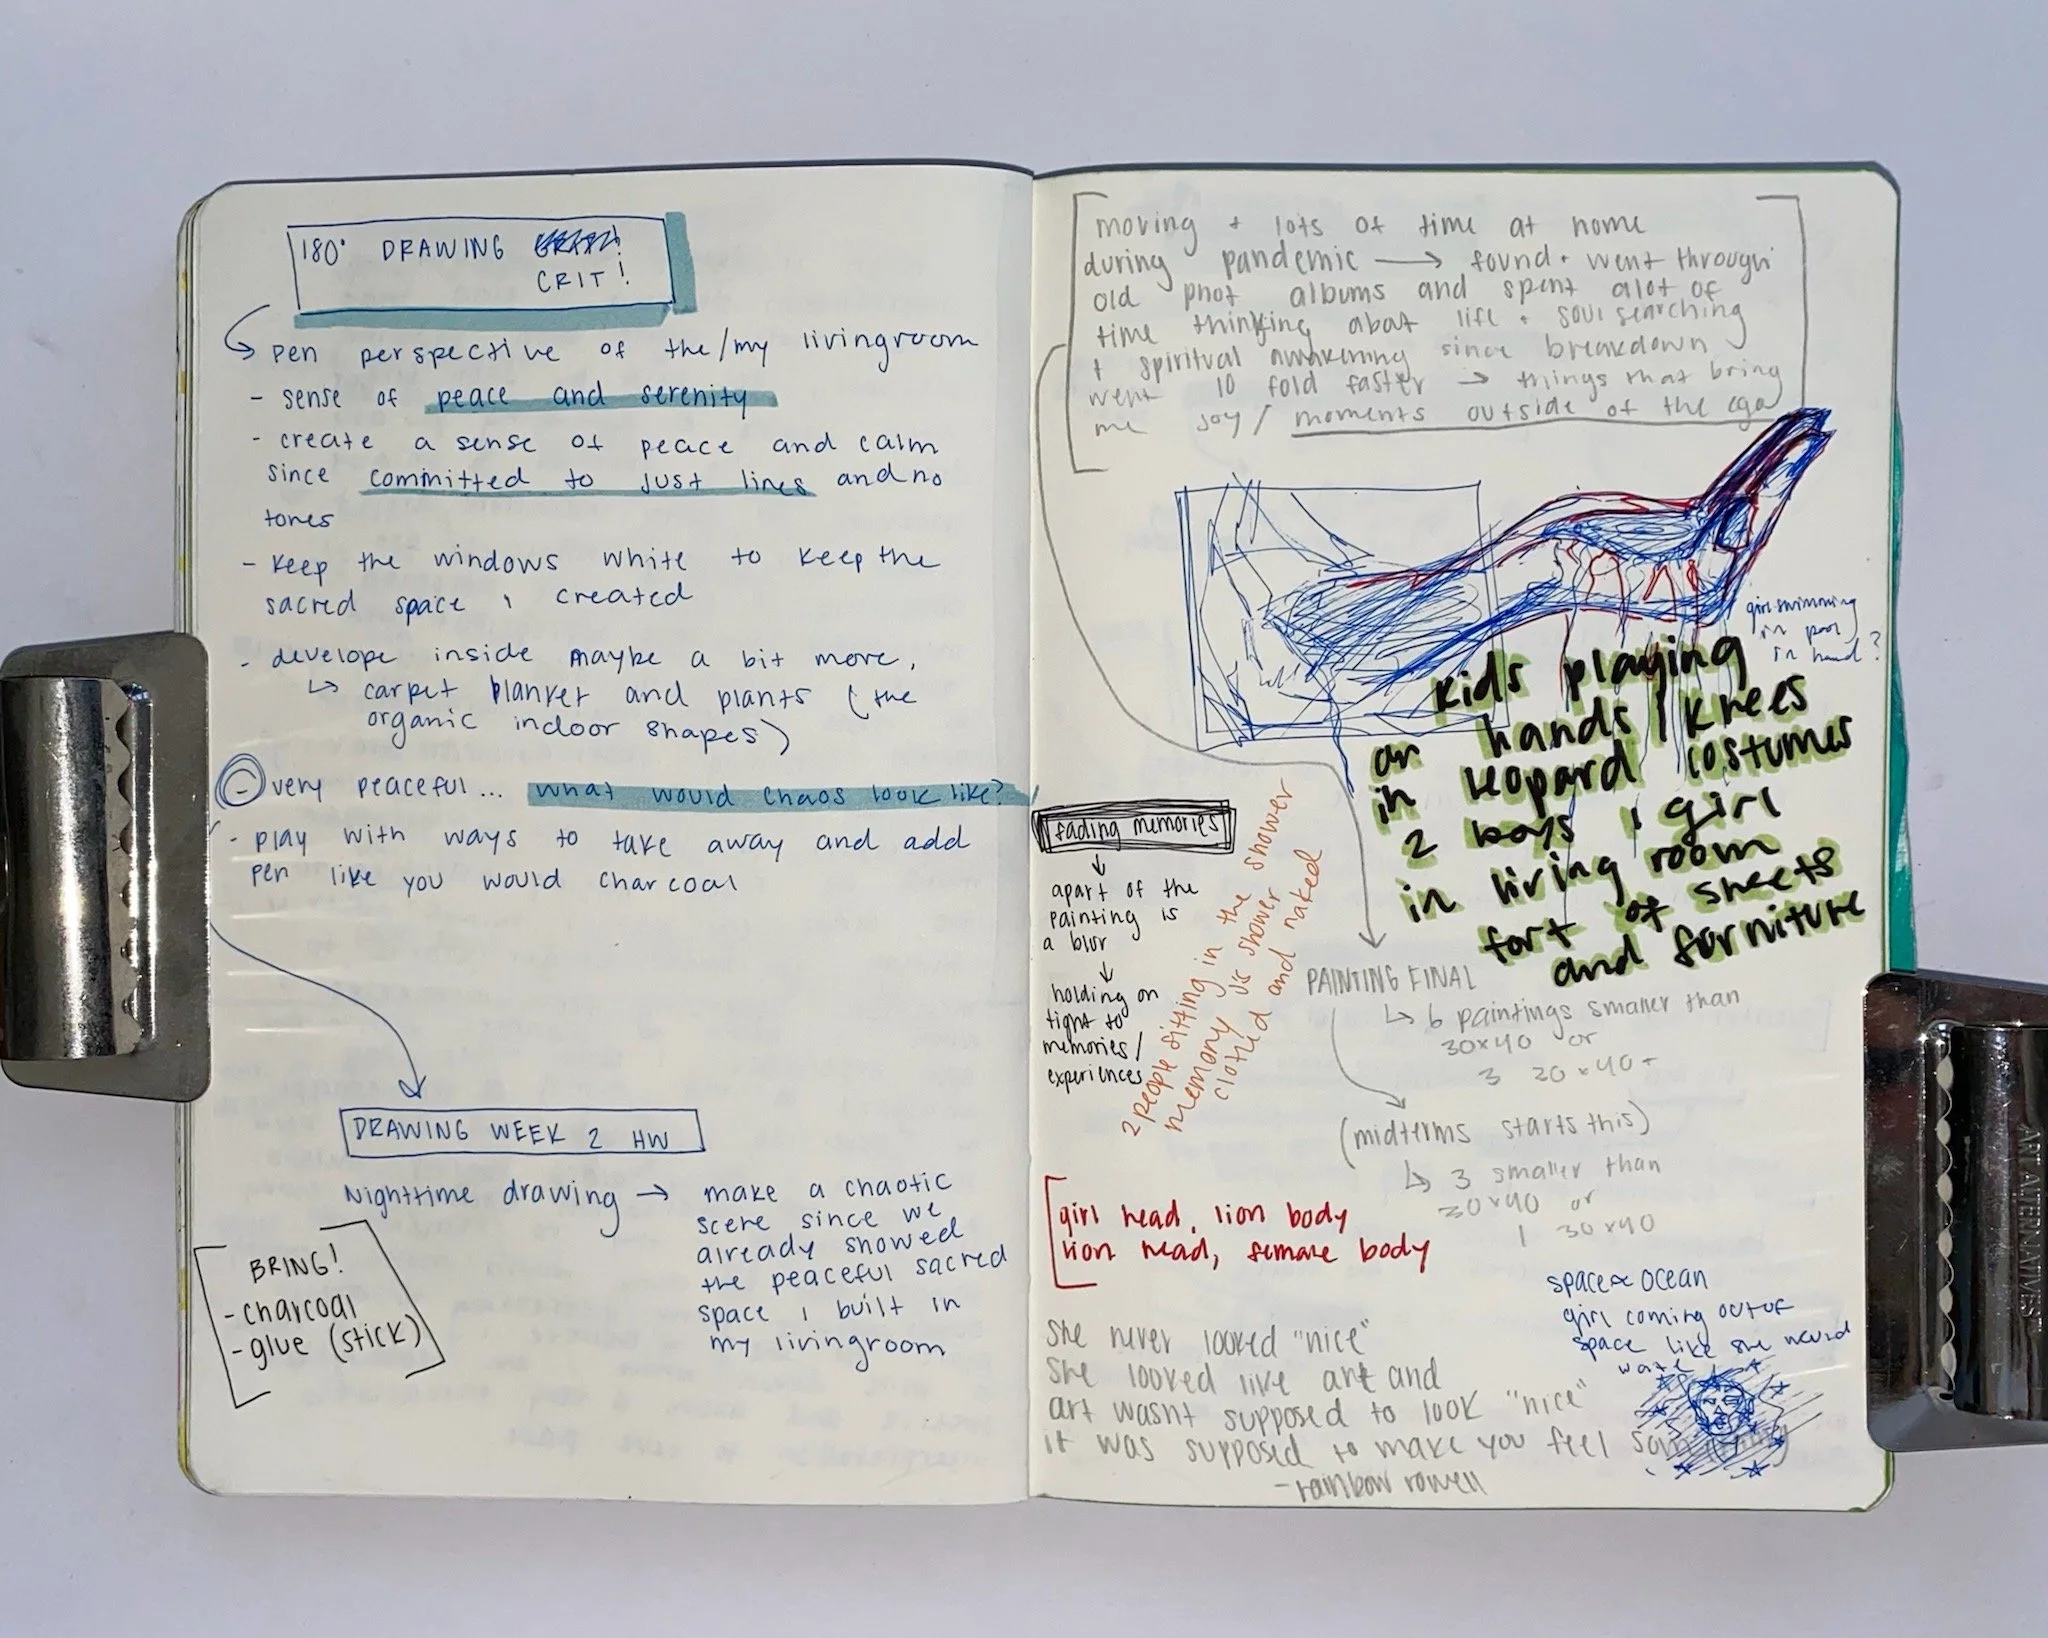 180° DRAWING
CRIT!
pen perspective of the/my livingroom
- sense of peace and serenity
- create a sense of peace and calm
since committed to just lines and no
tones
- keep the windows white to keep the
sacred space i created
- develope inside maybe a bit more,
↳ carpet blanket and plants (the
organic indoor shapes)
- very peaceful... what would chaos look like?
- play with ways to take away and add
pen like you would charcoal
DRAWING WEEK 2 HW
Nighttime drawing → make a chaotic
scene since we
already showed
the peaceful sacred
space i built in
my livingroom
BRING!
- charcoal
- glue (stick)
moving + lots of time at home
during pandemic → found + went through
old phot albums and spent alot of
time thinking about life + soul searching
+ spiritual awakening since breakdown
went 10 fold faster → things that bring
me joy / moments outside of the ego
girl swimming
in pool
in hand?
kids playing
on hands / knees
in leopard costumes
2 boys 1 girl
in living room
fort of sheets
and furniture
fading memories
↓
apart of the
painting is
a blur
↓
holding on
tight to
memories/
experiences
2 people sitting in the shower
memory vs shower
clothed and naked
PAINTING FINAL
↳ 6 paintings smaller than
30x40 or
3 30x40+
(midterms starts this)
↳ 3 smaller than
30x40 or
1 30x40
girl head, lion body
lion head, female body
space ocean
girl coming out of
space like she would
water
she never looked "nice"
she looked like art and
art wasnt supposed to look "nice"
it was supposed to make you feel something
- rainbow rowell
ART ALTERNATIVES